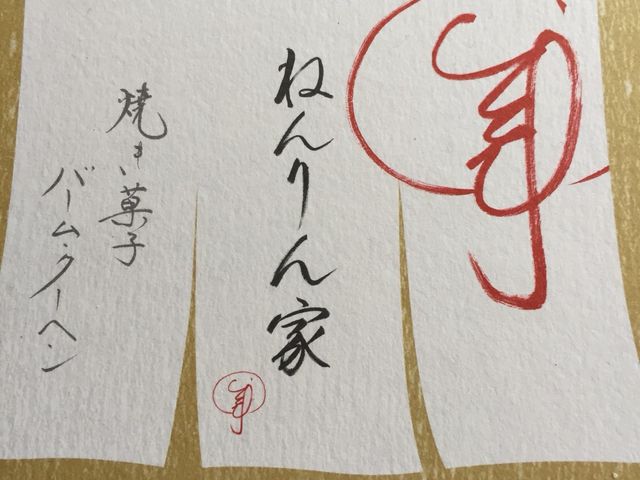 年
ねんりん家
年
焼き菓子
バーム・クーヘン